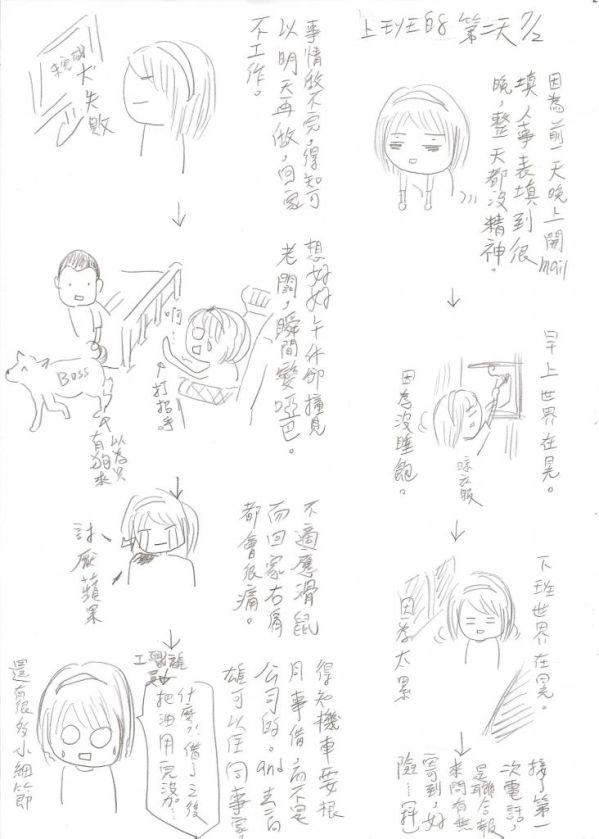 上班的第二天 7/2
因為前一天晚上開mail
填人事表填到很
晚，整天都沒精神。
早上世界在晃。
晾衣服
因為沒睡飽。
下班世界在晃。
因為太累
接了第一
次電話，
是聯合報
來問有無
寄到，好
險…
事情做不完，得知可
以明天再做，回家
不工作。
未完成
犬失敗
想好好午休卻撞見
老闆，瞬間變啞巴。
啊…
打招手
BOSS
以為只
有狗來
不適應滑鼠
而回家右肩
都會很痛。
討厭蘋果
得知機車要跟
同事借而不是
公司的。and 去高
雄可以住同事家
什麼?!借了之後
把油用完沒加…
還有很多小細節